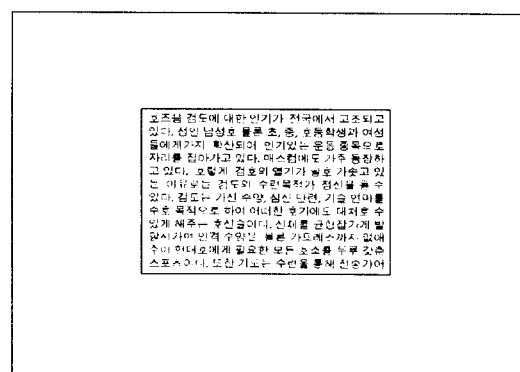 호즈음 검도에 대한 인기가 전국에서 고조되고
있다. 성인 남성호 물론 초, 중, 호등학생과 여성
들에게까지 확산되어 인기있는 운동 종목으로
자리를 잡아가고 있다. 매스컴에도 가주 등장하
고 있다. 호렇게 검호의 열기가 활호 가솟고 있
는 이유로는 검도의 수련목적가 정신을 홀 수
있다. 검도는 가신 수양, 심신 단련, 기술 연마를
수호 목적으로 하여 어떠한 호기에도 대처호 수
있게 해주는 호신술이다. 신체를 균형잡가게 발
인격 수양은 물론
현대호에게 필요한 모든 호소를 두루 갖춘
스포츠이다. 또한 기도는 수련을 통해